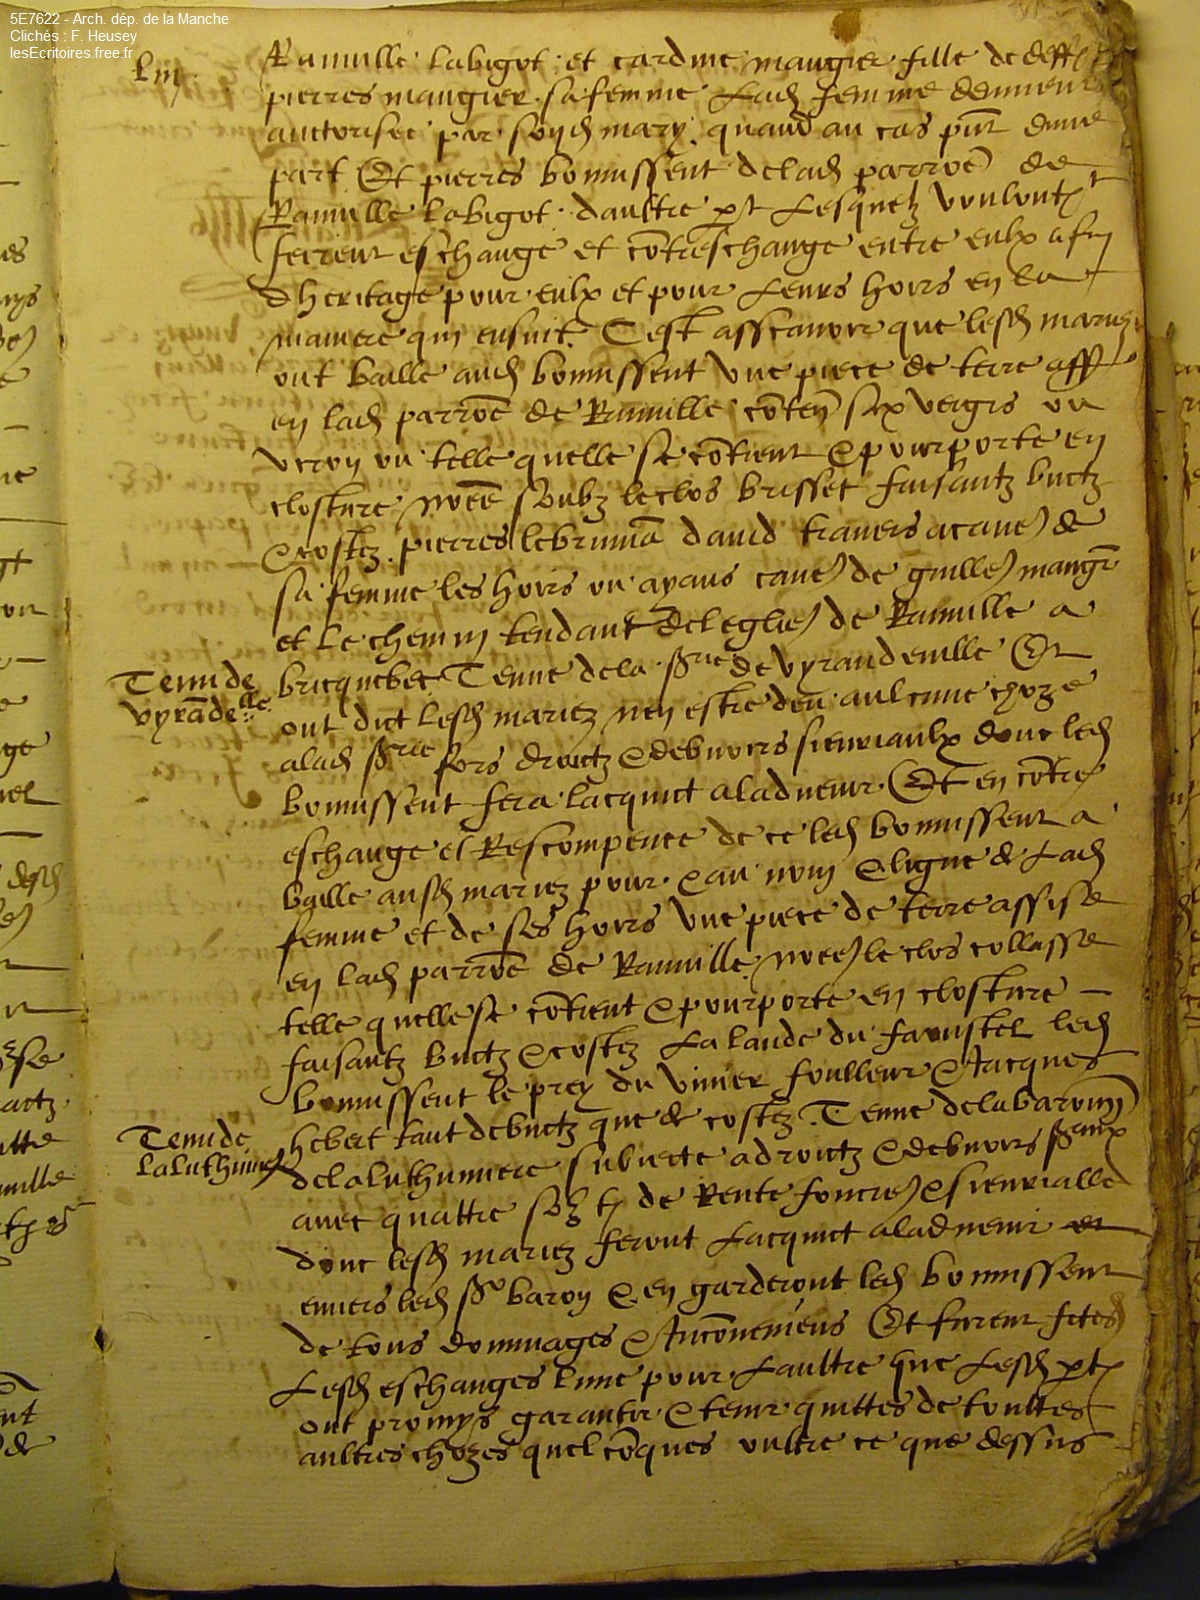 5E7622 - Arch. dép. de la Manche
Clichés : F. Heusey
lesEcritoires.free.fr
Liij
Rauville labigot et cardine maugier fille de deff
pierres maugier sa femme Lad femme deument
auctorisee par sond mary quand au cas pnt dune
part Et pierres bonnissent delad parroe de
Rauville labigot daultre pt Lesquelz voulont
feirent eschange et contreschange entre eulx afin
dheritage pour eulx et pour Leurs hoirs en la
maniere qui ensuit Cest asscauoir que lesd mariez
ont baille aud bonnissent vne piece de terre ass
en lad parroe de Rauville conten six vergis ou
viron ou telle quelle se contient & pourporte en
closture nomee soubz leclos brisset faisantz buctz
& costez pierres lebruma dauid trauers acause de
sa femme les hoirs ou ayans cause de guille maugr
et Le chemin tendant deleglise de Rauville a
bricquebec Tenue dela srie de vyrandeuille Et
ont dict lesd mariez nen estre deu aulcune choze
alad srie fors droictz & debuoirs sieuriaulx donc led
bonnissent fera lacquict aladuenir Et en contre
eschange et Rescompence de ce led bonnissent a
baille ausd mariez pour & au nom & ligne de Lad
femme et de ses hoirs vne piece de terre assise
en lad parroe de Rauville nomee le clos collasse
telle quelle se contient & pourporte en closture
faisantz buctz & costez La lande du fauustel led
bonnissent le prey du viuier foulleur & Jacques
hebert tant debuctz que de costez Tenue delabaronn
delaluthumiere subiecte adroictz & debuoirs sraux
auec quattre solz ts de Rente fonciere & sieurialle
donc lesd mariez feront Lacquict aladuenir et
enuers led sr baron & en garderont led bonnissent
de tous dommages & Inconueniens Et furent fctes
Lesd eschanges lune pour Laultre que Lesd pts
ont promys garantir & tenir quittes de toultes
aultres chozes quelconques oultre ce que dessus
Tenu de
vyrade lle
Tenu de
laluthumie